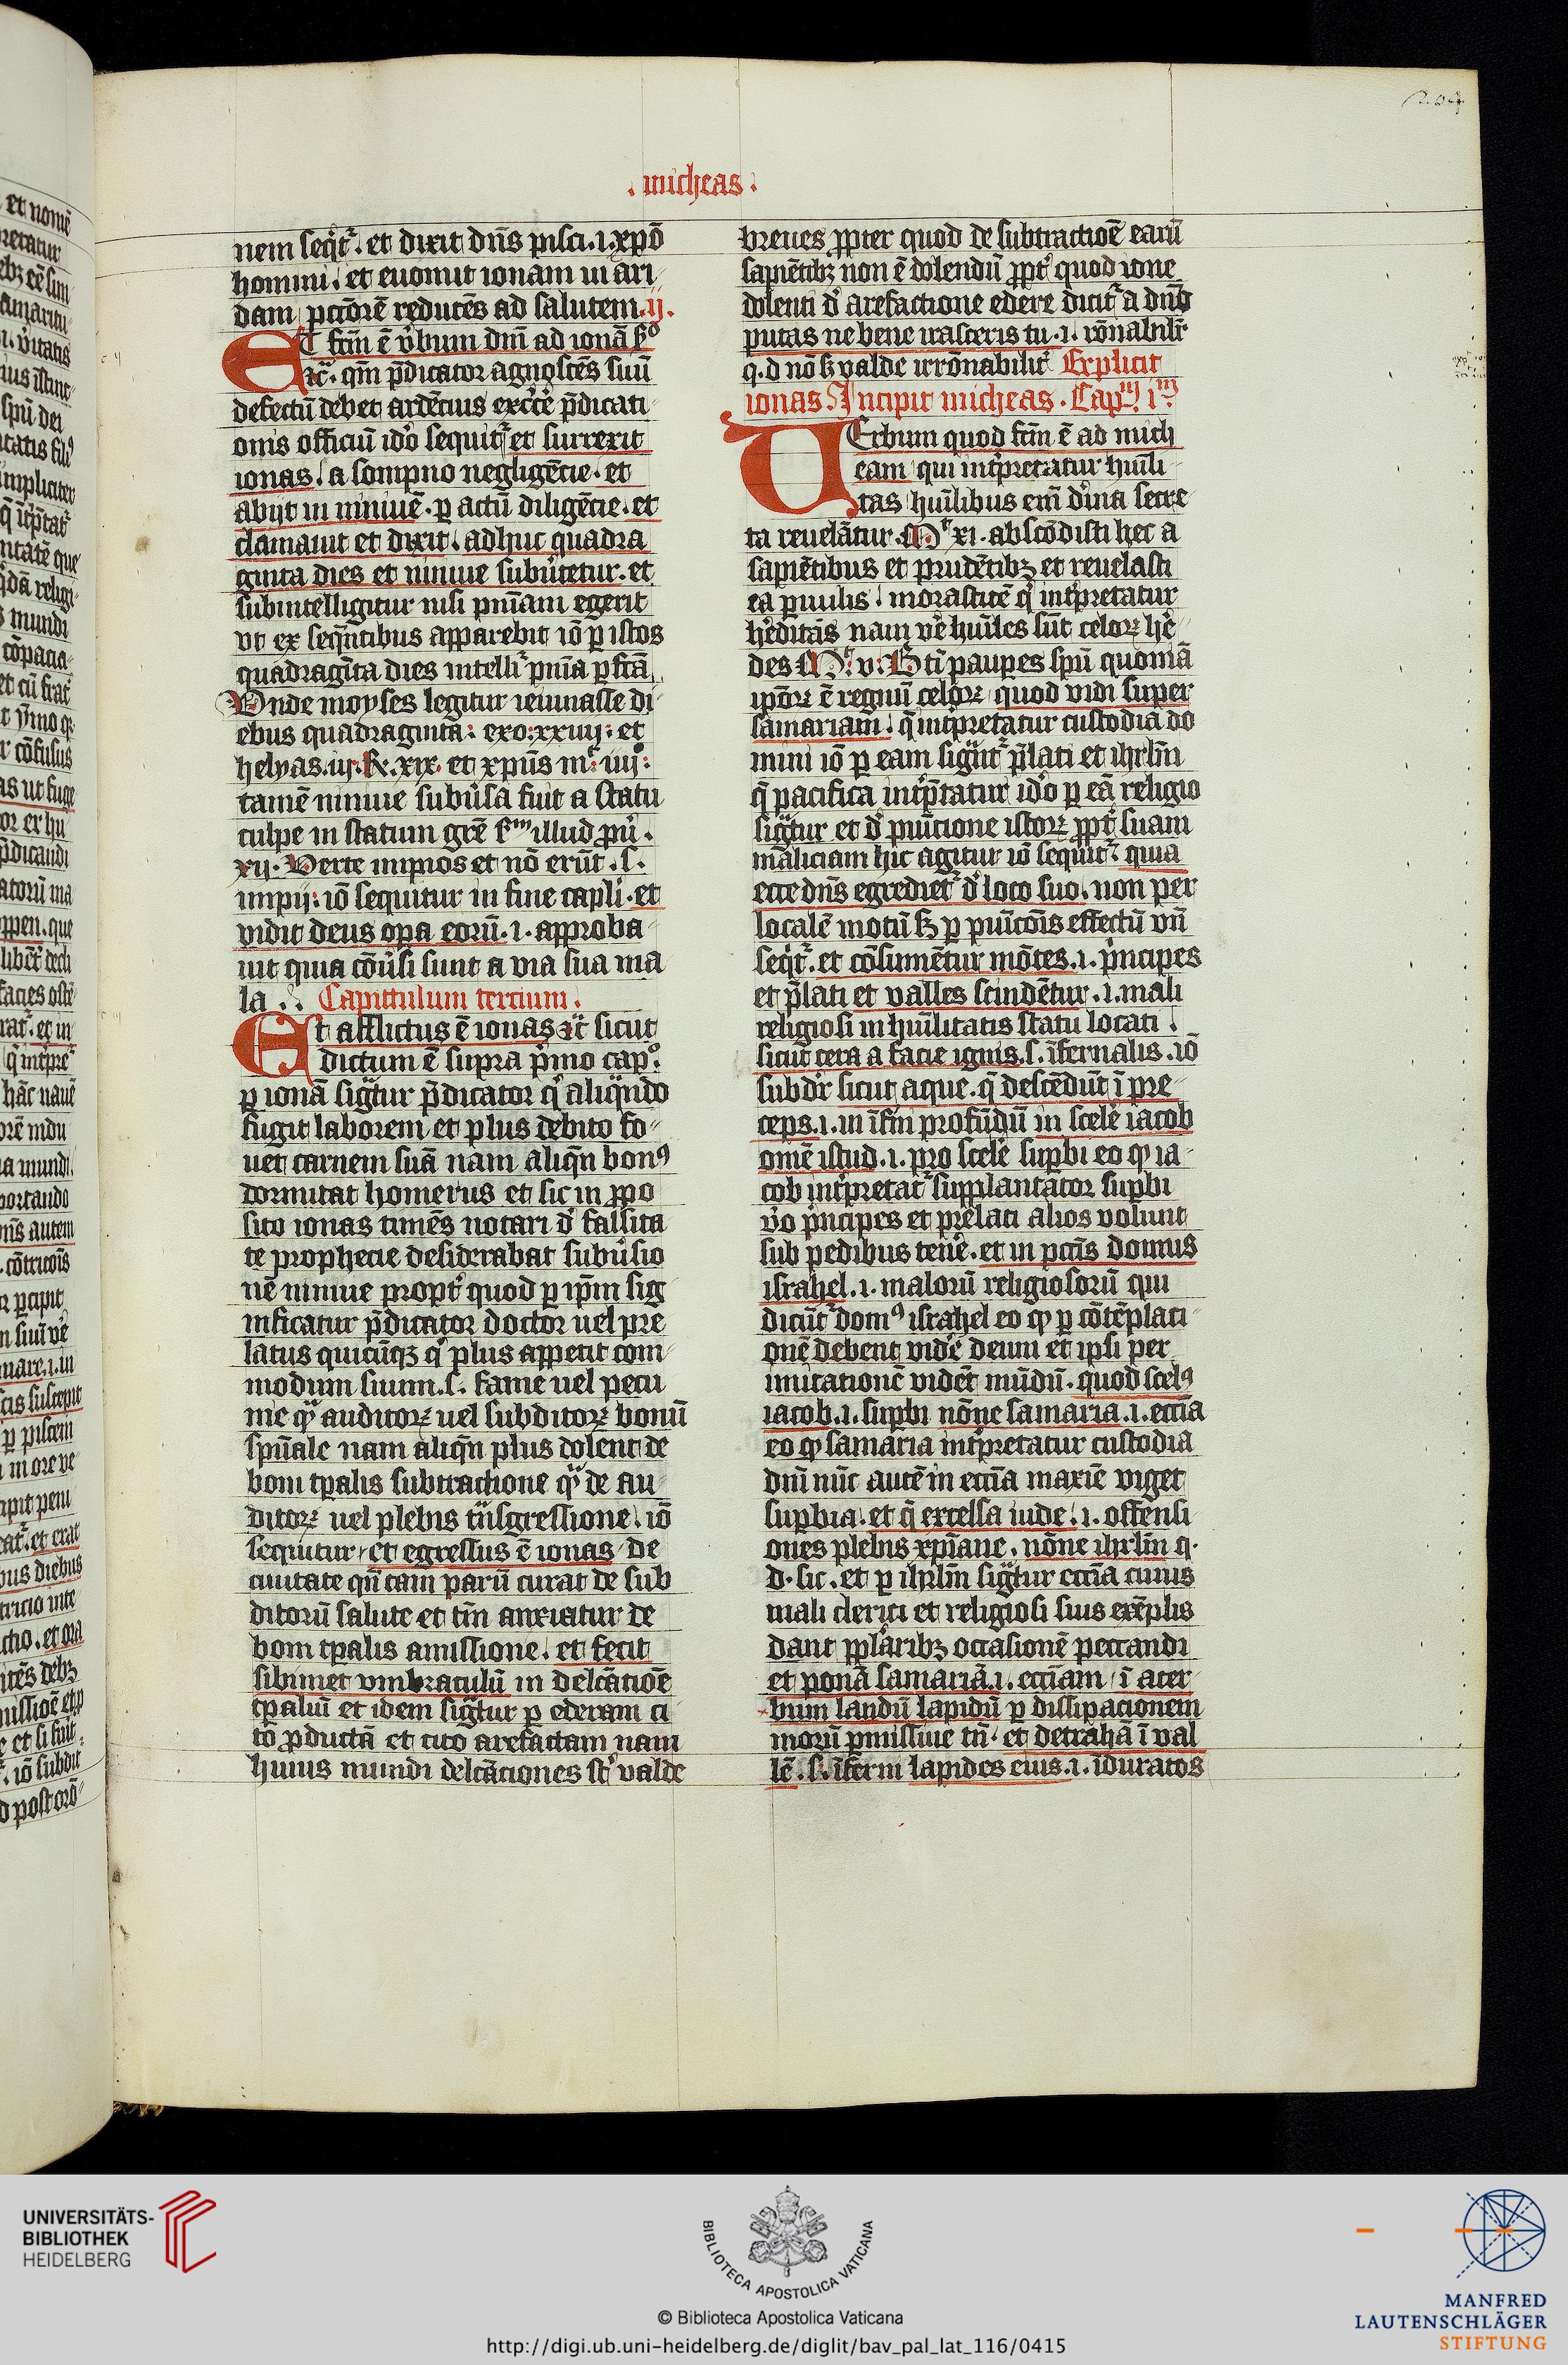 . micheas .
nem seqͥtᷣ. et dixit dn̄s pisci .i. xp̄o
homini. et euomuit ionam in ari
dam pctōrē reducēs ad salutem .ij.
Et fc̄m ē v̓bum dn̄i ad ionā s̄o
⁊c̄. qm̄ p̄dicator agnoscēs suū
defectū debet ardēcius exc̓c̓e p̄dicati
onis officiū id̓o sequitᷣ et surrexit
ionas. a sompno negligēcie. et
abijt in niniuē. ꝑ actū diligēcie. et
clamauit et dixit. adhuc quadra
ginta dies et niniue subu̓tetur. et
subintelligitur nisi pn̄iam egerit
vt ex seqn̄tibus apparebit iō ꝑ istos
quadragīta dies intelliᷣ pn̄ia ꝑfc̄ā
Vnde moyses legitur ieiunasse di
ebus quadraginta: exo: xxiiij: et
helyas. iij. R. xix. et xpūs mͭ: iiij:
tamē niniue subu̓sa fuit a statu
culpe in statum grē sᵐ illud pu̓.
xij. Verte impios et nō erūt .s.
impij: iō sequitur in fine capli. et
vidit deus oꝑa eorū .i. approba
uit quia cōu̓si sunt a via sua ma
la . Capittulum tercium.
Et afflictus ē ionas ⁊c̄ sicut
dictum ē supra pͥmo capᵒ.
ꝑ ionā sigᷓtur p̄dicator qͥ aliqn̄do
fugit laborem et plus debito fo
uet carnem suā nam aliqn̄ bonꝰ
dormitat homerus et sic in ꝓpo
sito ionas timēs notari d̓ falsita
te prophecie desiderabat subu̓sio
nē niniue propt̓ quod ꝑ ip̄m sig
nificatur p̄dicator doctor uel pre
latus quicūqꝫ qͥ plus appetit com
modum suum .s. fame uel pecu
nie qᷓ auditoꝝ uel subditoꝝ bonū
spūale nam aliqn̄ plus dolent de
boni tꝑalis subtractione qᷓ de au
ditoꝝ uel plebis tͣnsgressione. iō
sequitur. et egressus ē ionas de
ciuitate qn̄ tam parū curat de sub
ditorū salute et tn̄ anxiatur de
boni tꝑalis amissione. et fecit
sibimet vmbraculū in delc̄atiōe
tꝑaliū et idem sigᷓtur ꝑ ederam ci
to ꝓductā et cito arefactam nam
huius mundi delc̄aciones st̓ valde
breues ꝓpter quod de subtractiōe earū
sapiētibꝫ non ē dolendū ꝓpt̓ quod ione
dolenti d̓ arefactione edere dicitᷣ a dn̄o
putas ne bene irasceris tu .i. rōnabilit̓
q. d nō sꝫ valde irrōnabilit̓ Explicit
ionas Incipit micheas. Capᵐ iᵐ
Verbum quod fc̄m ē ad mich
eam qui int̓pretatur hūili
tas hūilibus em̄ di̓na secre
ta reuelātur. Mᵗ xi. abscōdisti hec a
sapiētibus et prudētibꝫ et reuelasti
ea ꝑuulis. morastitē qͥ int̓pretatur
he̓ditās nam ve̓ hūiles sūt celoꝝ he̓
des Mᵗ: v: Bt̄i pauꝑes spū quoniā
ipōꝝ ē regnū celoꝝ quod vidi super
samariam. q̄ int̓pretatur custodia do
mini iō ꝑ eam sigᷓtᷣ p̄lati et ihrlm̄
q̄ pacifica int̓p̄tatur id̓o ꝑ eā religio
sigᷓtur et d̓ pūicione istoꝝ ꝓpt̓ suam
maliciam hic agitur iō sequitᷣ: quia
ecce dn̄s egredietᷣ d̓ loco suo. non per
localē motū sꝫ ꝑ pūicōis effectū vn̄
seqͥtᷣ. et cōsumētur mōtes .i. pͥncipes
et p̄lati et valles scindētur .i. mali
religiosi in hūilitatis statu locati.
sicut cera a facie ignis .s. īfernalis. iō
subdr̄ sicut aque. q̄ descēdūt ī pre
ceps .i. in īfīm profūdū in scele̓ iacob
om̄e istud .i. pro scele̓ suꝑbi eo qꝫ ia
cob int̓pretatᷣ supplantator suꝑbi
v̓o pͥncipes et prelati alios volunt
sub pedibus tene̓. et in pctīs domus
israhel .i. malorū religiosorū qui
dicūtᷣ domꝰ israhel eo qꝫ ꝑ cōtēplati
onē debent vide̓ deum et ipsi per
imitationē vidēt mūdū. quod scelꝰ
iacob .i. suꝑbi nōne samaria .i. ecc̄ia
eo qꝫ samaria int̓pretatur custodia
dn̄i nūc autē in ecc̄ia maxīe viget
suꝑbia. et q̄ excelsa iude .i. offensi
ones plebis xp̄iane. nōne ihrlm̄ q.
d. sic. et ꝑ ihrlm̄ sigᷓtur ecc̄ia cuius
mali clerici et religiosi suis exēplis
dant pplaribꝫ occasionē peccandi
et ponā samariā .i. ecc̄iam ī acer
bum landū lapidū ꝑ dissipacionem
morū ꝑmissiue tn̄. et detrahā ī val
lē .s. īferni lapides eius .i. īduratos
UNIVERSITÄTS-
BIBLIOTHEK
HEIDELBERG
BIBLIOTECA APOSTOLICA VATICANA
© Biblioteca Apostolica Vaticana
http://digi.ub.uni-heidelberg.de/diglit/bav_pal_lat_116/0415
MANFRED
LAUTENSCHLÄGER
STIFTUNG